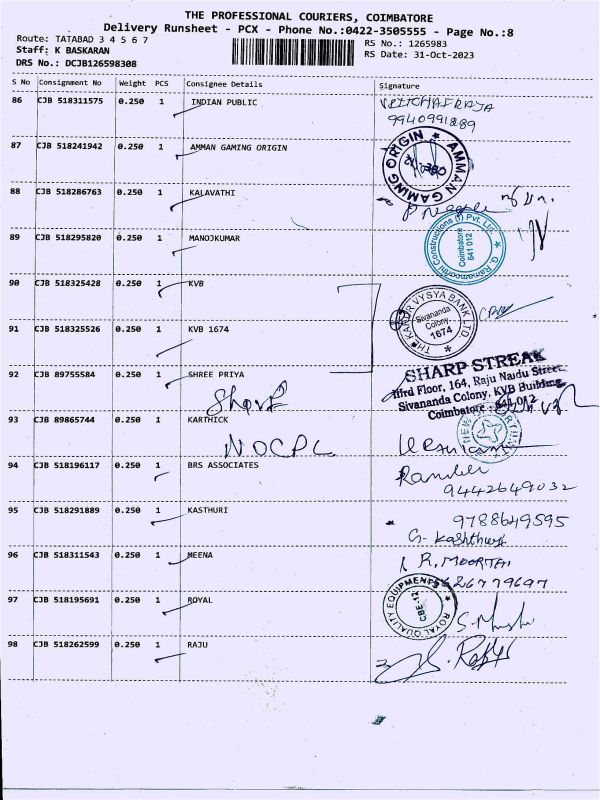 THE PROFESSIONAL COURIERS, COIMBATORE
Delivery Runsheet - PCX - Phone No.:0422-3505555 - Page No.:8
Route: TATABAD 3 4 5 6 7
RS No.: 1265983
Staff: K BASKARAN
RS Date: 31-Oct-2023
DRS No.: DCJB126598308
S No Consignment No Weight PCS Consignee Details Signature
86 CJB 518311575 0.250 1 INDIAN PUBLIC
87 CJB 518241942 0.250 1 AMMAN GAMING ORIGIN
AMMAN GAMING ORIGIN
88 CJB 518286763 0.250 1 KALAVATHI
89 CJB 518295820 0.250 1 MANOJKUMAR
G. Ramamoorthi Constructions (I) Pvt. Ltd.
Coimbatore
641 012
90 CJB 518325428 0.250 1 KVB
THE KARUR VYSYA BANK LTD.
Sivananda
Colony
1674
91 CJB 518325526 0.250 1 KVB 1674
92 CJB 89755584 0.250 1 SHREE PRIYA
SHARP STREAK
IIIrd Floor, 164, Raju Naidu Street,
Sivananda Colony, KVB Building,
Coimbatore - 641 012
Sharp
93 CJB 89865744 0.250 1 KARTHICK
NOCPL
94 CJB 518196117 0.250 1 BRS ASSOCIATES
9442649032
95 CJB 518291889 0.250 1 KASTHURI
9788649595
G. Kashthuri
96 CJB 518311543 0.250 1 MEENA
R. MOORTHI
97 CJB 518195691 0.250 1 ROYAL
ROYAL QUALITY EQUIPMENTS
CBE-12
98 CJB 518262599 0.250 1 RAJU